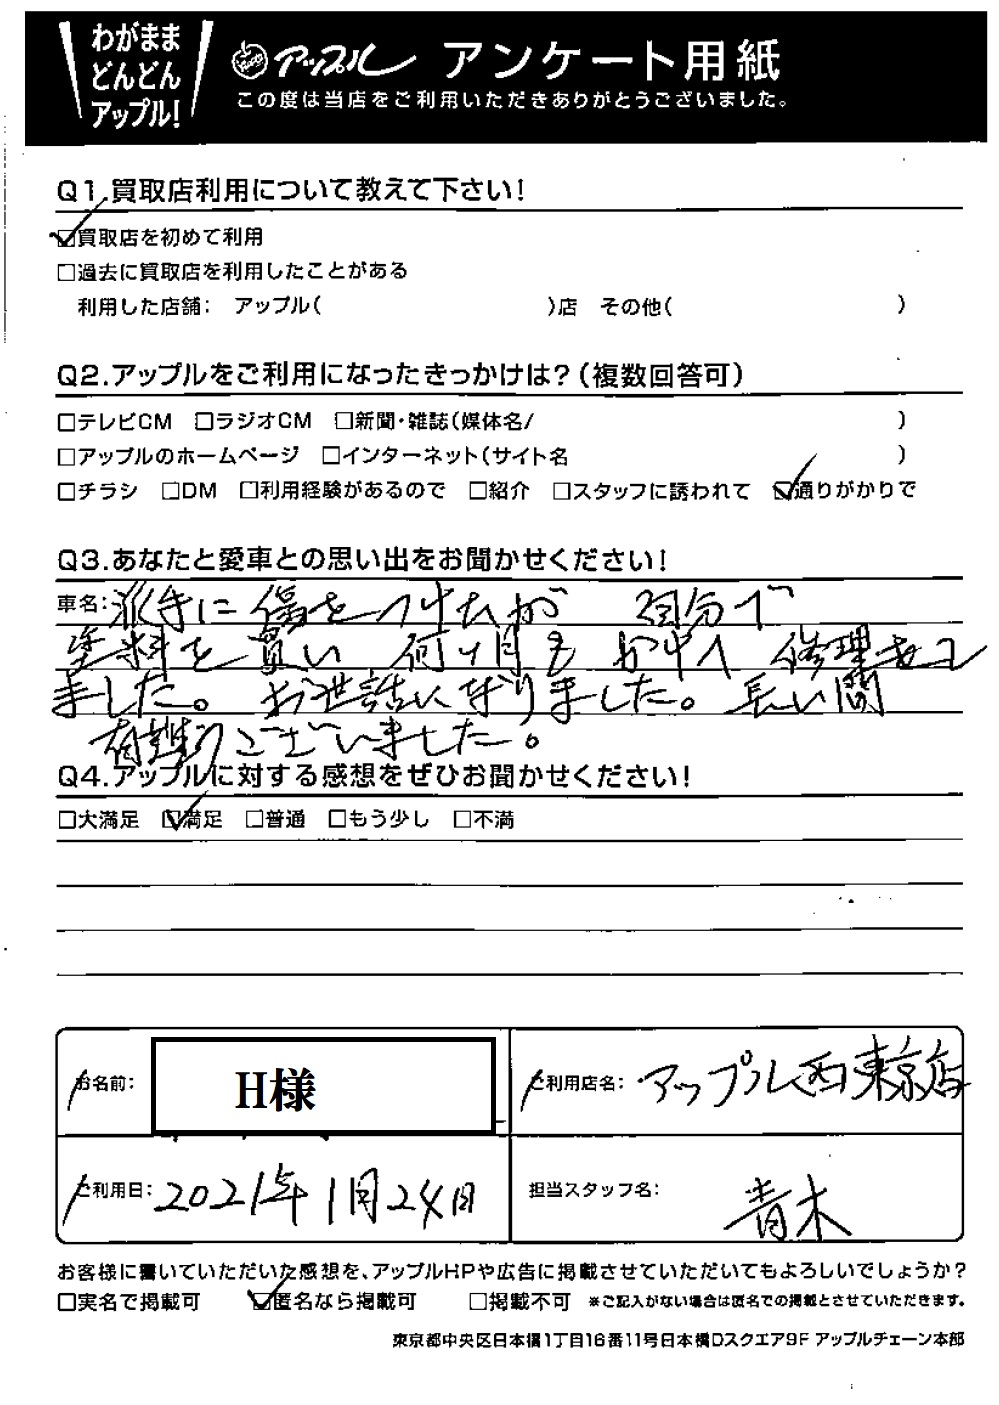 わがまま
どんどん
アップル!
アップル アンケート用紙
この度は当店をご利用いただきありがとうございました。
Q1.買取店利用について教えて下さい!
☑買取店を初めて利用
□過去に買取店を利用したことがある
利用した店舗: アップル( )店 その他( )
Q2.アップルをご利用になったきっかけは?(複数回答可)
□テレビCM □ラジオCM □新聞・雑誌(媒体名/ )
□アップルのホームページ □インターネット(サイト名 )
□チラシ □DM □利用経験があるので □紹介 □スタッフに誘われて ☑通りがかりで
Q3.あなたと愛車との思い出をお聞かせください!
車名: 派手に傷をつけたが 自分で
塗料を買い 何ヶ月もかけて 修理をし
ました。 お世話になりました。 長い間
有難うございました。
Q4.アップルに対する感想をぜひお聞かせください!
□大満足 ☑満足 □普通 □もう少し □不満
お名前: H様
ご利用店名: アップル西東京店
ご利用日: 2021年1月24日
担当スタッフ名: 青木
お客様に書いていただいた感想を、アップルHPや広告に掲載させていただいてもよろしいでしょうか?
□実名で掲載可 ☑匿名なら掲載可 □掲載不可 ※ご記入がない場合は匿名での掲載とさせていただきます。
東京都中央区日本橋1丁目16番11号日本橋Dスクエア9F アップルチェーン本部